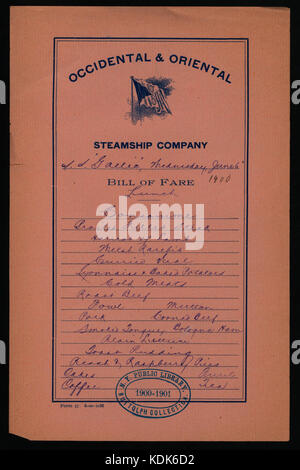 OCCIDENTAL & ORIENTAL
STEAMSHIP COMPANY
S.S. "Gaelic", Wednesday, June 6th
1900
BILL OF FARE
Lunch
Consomme
Crab Salad
Welsh Rarebit
Curried Veal
Lyonnaise & Baked Potatoes
Cold Meats
Roast Beef
Fowl Mutton
Pork Corned Beef
Smoked Tongue Bologna Ham
Plain Lettuce
Sago Pudding
Peach & Raspberry Pies
Cakes Nuts
Coffee Tea
N. Y. PUBLIC LIBRARY
1900-1901
BUTTOLPH COLLECTION
alamy
KDK6D2